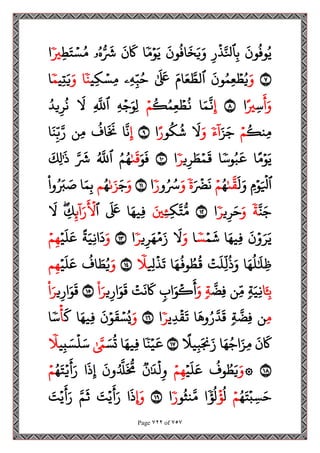 يُوفُونَ بِٱلنَّذْرِ وَيَخَافُونَ يَوْمًا كَانَ شَرُّهُۥ مُسْتَطِيرًا
٧ وَيُطْعِمُونَ ٱلطَّعَامَ عَلَىٰ حُبِّهِۦ مِسْكِينًا وَيَتِيمًا
وَأَسِيرًا ٨ إِنَّمَا نُطْعِمُكُمْ لِوَجْهِ ٱللَّهِ لَا نُرِيدُ
مِنكُمْ جَزَآءً وَلَا شُكُورًا ٩ إِنَّا نَخَافُ مِن رَّبِّنَا
يَوْمًا عَبُوسًا قَمْطَرِيرًا ١٠ فَوَقَىٰهُمُ ٱللَّهُ شَرَّ ذَٰلِكَ
ٱلْيَوْمِ وَلَقَّىٰهُمْ نَضْرَةً وَسُرُورًا ١١ وَجَزَىٰهُم بِمَا صَبَرُوا۟
جَنَّةً وَحَرِيرًا ١٢ مُّتَّكِـِٔينَ فِيهَا عَلَى ٱلْأَرَآئِكِ ۖ لَا
يَرَوْنَ فِيهَا شَمْسًا وَلَا زَمْهَرِيرًا ١٣ وَدَانِيَةً عَلَيْهِمْ
ظِلَٰلُهَا وَذُلِّلَتْ قُطُوفُهَا تَذْلِيلًا ١٤ وَيُطَافُ عَلَيْهِم
بِـَٔانِيَةٍ مِّن فِضَّةٍ وَأَكْوَابٍ كَانَتْ قَوَارِيرَا۠ ١٥ قَوَارِيرَا۟
مِن فِضَّةٍ قَدَّرُوهَا تَقْدِيرًا ١٦ وَيُسْقَوْنَ فِيهَا كَأْسًا
كَانَ مِزَاجُهَا زَنجَبِيلًا ١٧ عَيْنًا فِيهَا تُسَمَّىٰ سَلْسَبِيلًا
١٨ ۞ وَيَطُوفُ عَلَيْهِمْ وِلْدَٰنٌ مُّخَلَّدُونَ إِذَا رَأَيْتَهُمْ
حَسِبْتَهُمْ لُؤْلُؤًا مَّنثُورًا ١٩ وَإِذَا رَأَيْتَ ثَمَّ رَأَيْتَ
Page ٧٢٢ of ٧٥٧